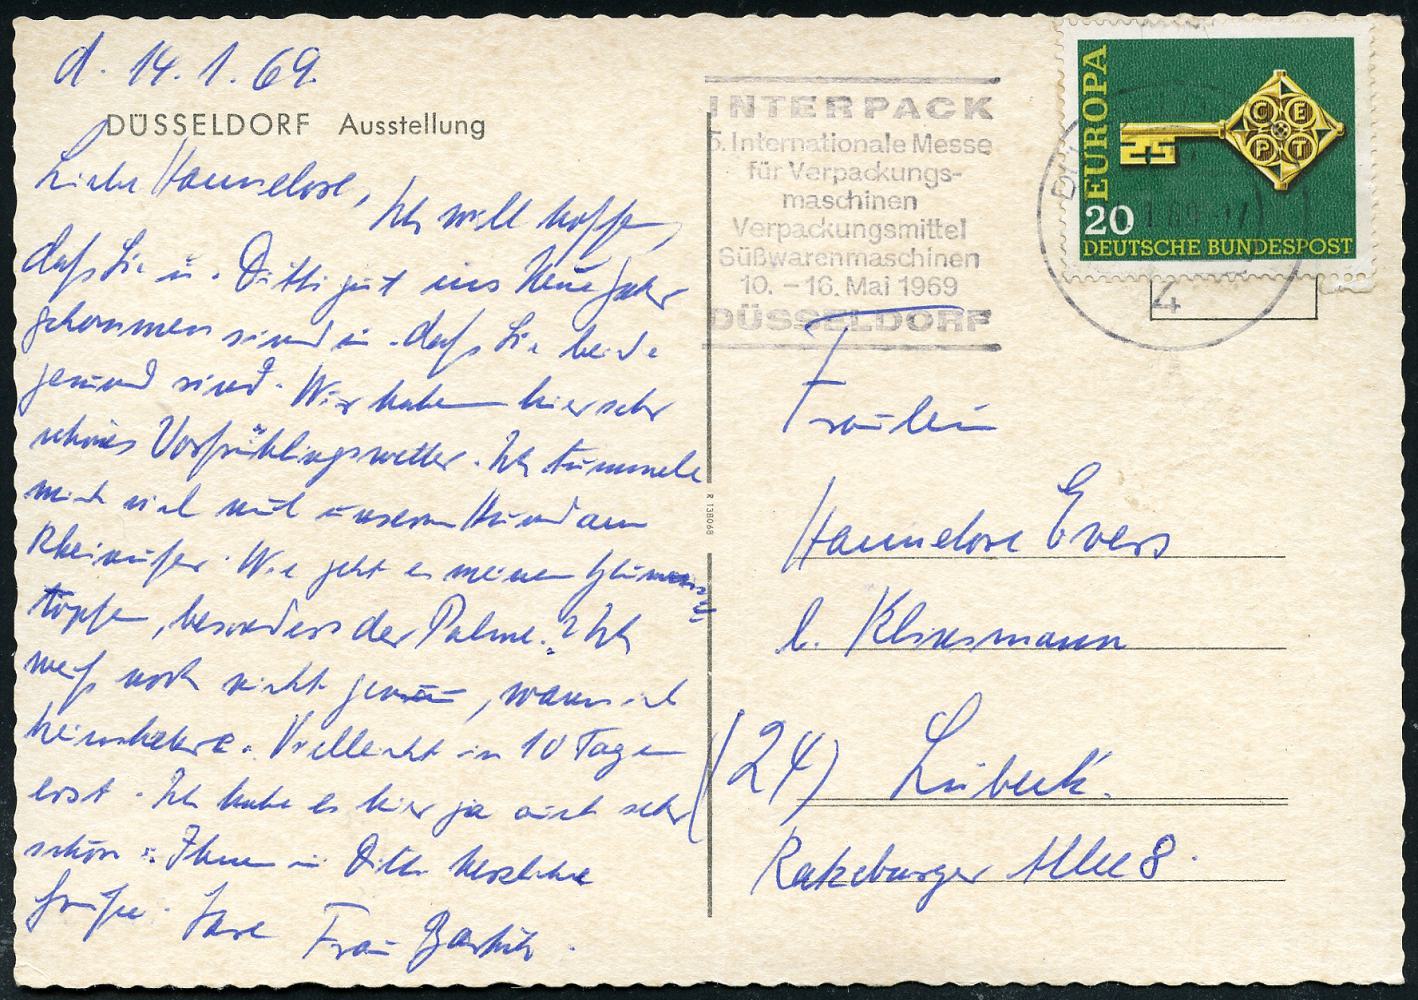 d. 14.1.69.
DÜSSELDORF Ausstellung
Liebe Hannelore,
Ich will hoffen,
daß Sie u. Ditti gut ins Neue Jahr
gekommen sind u. daß Sie beide
gesund sind. Wir haben hier sehr
schönes Vorfrühlingswetter. Ich tummele
mich viel mit unserm Hund am
Rheinufer. Wie geht es meinen Blumen
töpfen, besonders der Palme? Ich
weiß noch nicht genau, wann ich
heimkehre. Vielleicht in 10 Tagen
erst. Ich habe es hier ja auch sehr
schön. Ihnen u. Ditti herzliche
Grüße. Ihre Frau
INTERPACK
5. Internationale Messe
für Verpackungs-
maschinen
Verpackungsmittel
Süßwarenmaschinen
10. – 16. Mai 1969
DÜSSELDORF
EUROPA
C E
P T
20
DEUTSCHE BUNDESPOST
4
R 138068
Fräulein
Hannelore Evers
b. Klinsmann
(24) Lübeck.
Ratzeburger Allee 8.